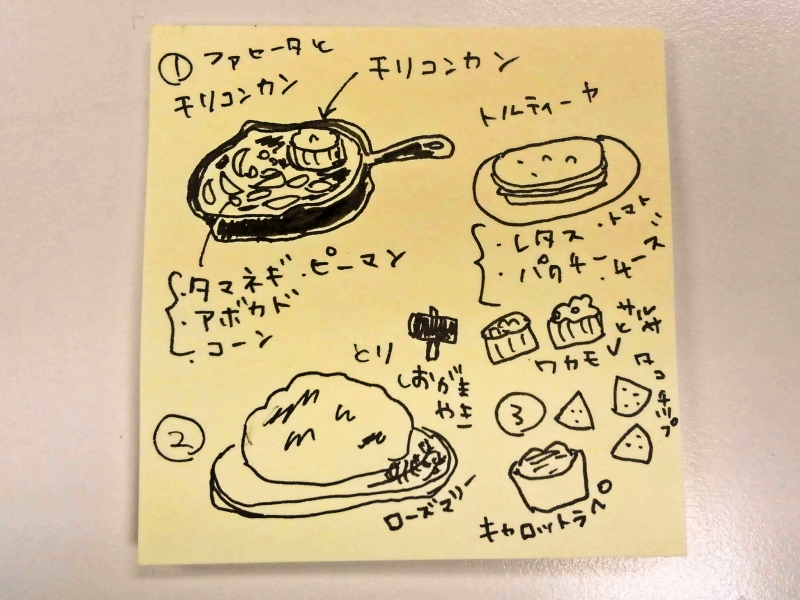 ① ファヒータと
チリコンカン
チリコンカン
トルティーヤ
・タマネギ ・ピーマン
・アボカド
・コーン
・レタス ・トマト
・パクチー ・チーズ
サルサ
と
ワカモレ
とり
しおがま
やき
②
ローズマリー
③
タコチップ
キャロットラペ